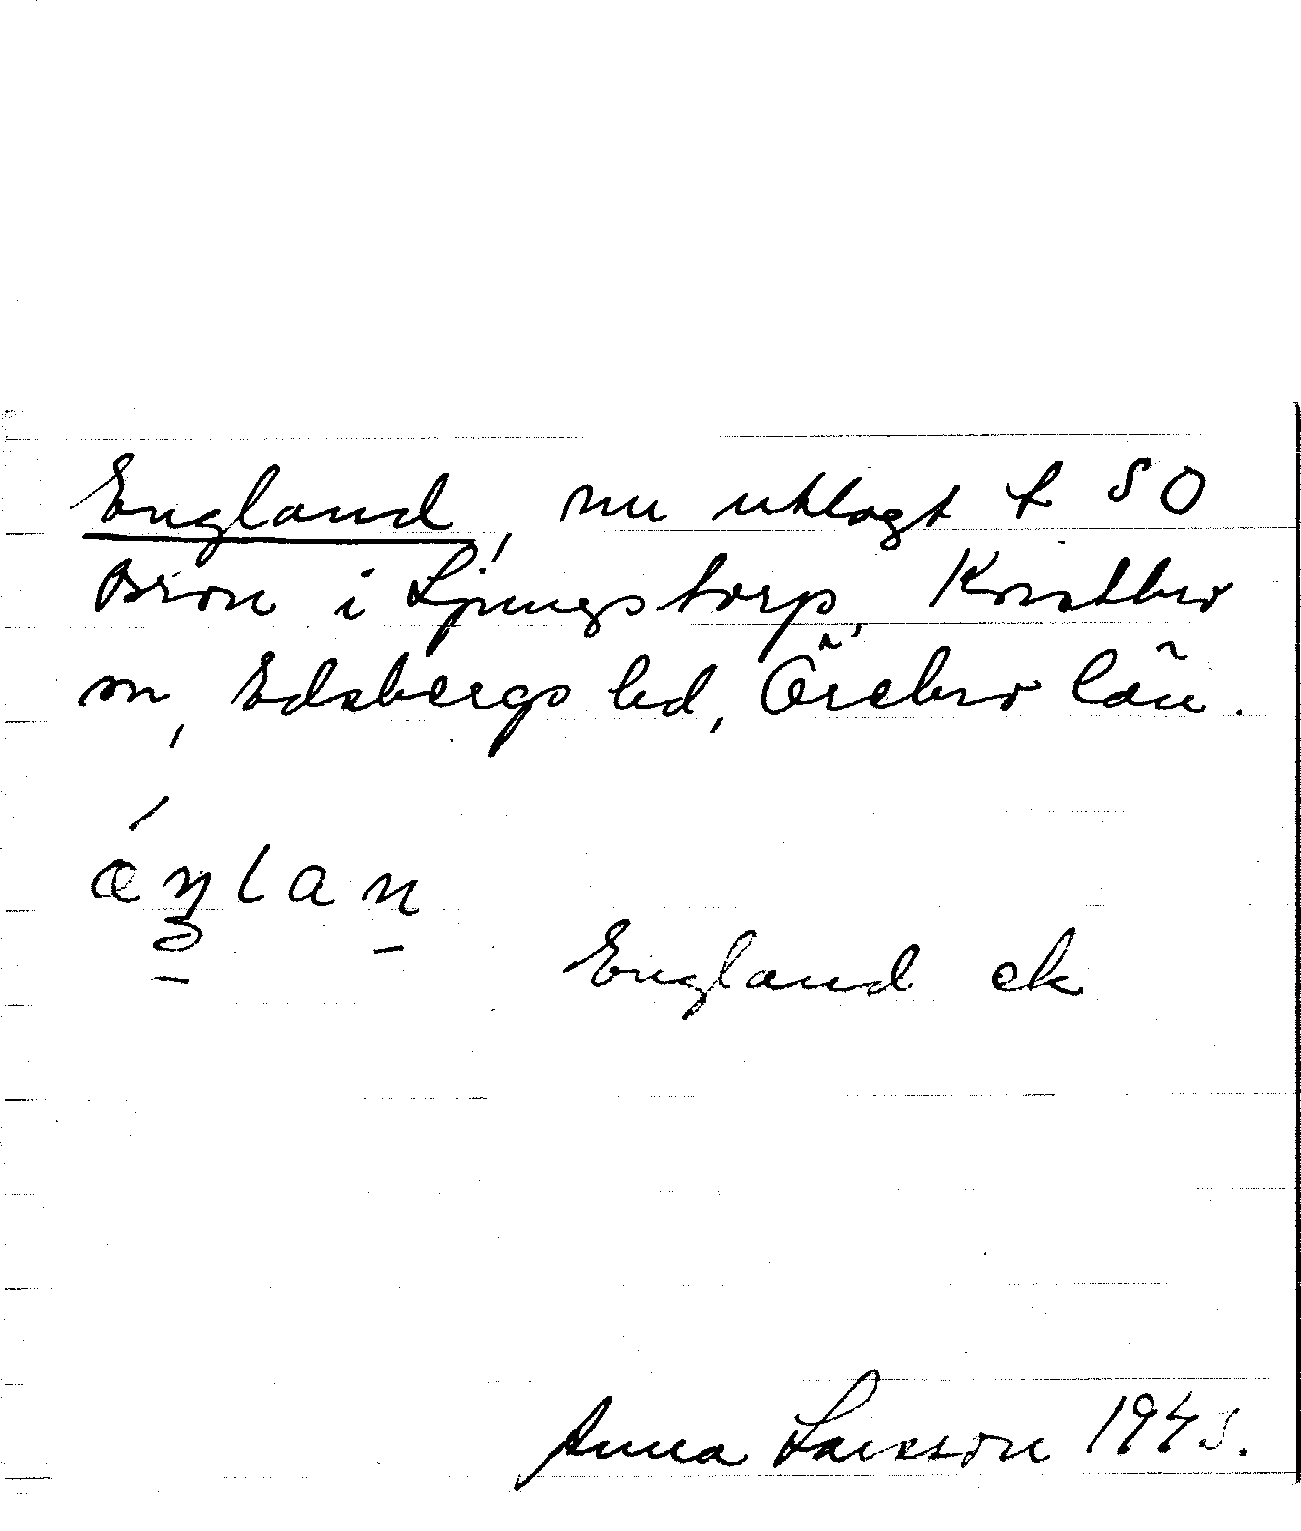 England, nu utlagt t SO
Bron i Ljungstorp, Knistbro
sn, Edsbergs hd, Örebro län.
England ek
Anna Larsson 1945.